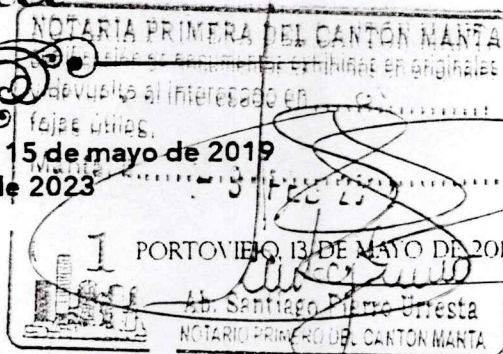 NOTARIA PRIMERA DEL CANTÓN MANTA
documentos exhibidos en originales
y devuelto al interesado en
fojas útiles.
15 de mayo de 2019
Manta,
de 2023
1 PORTOVIEJO, 13 DE MAYO DE 201
Ab. Santiago Fierro Urresta
NOTARIO PRIMERO DEL CANTÓN MANTA